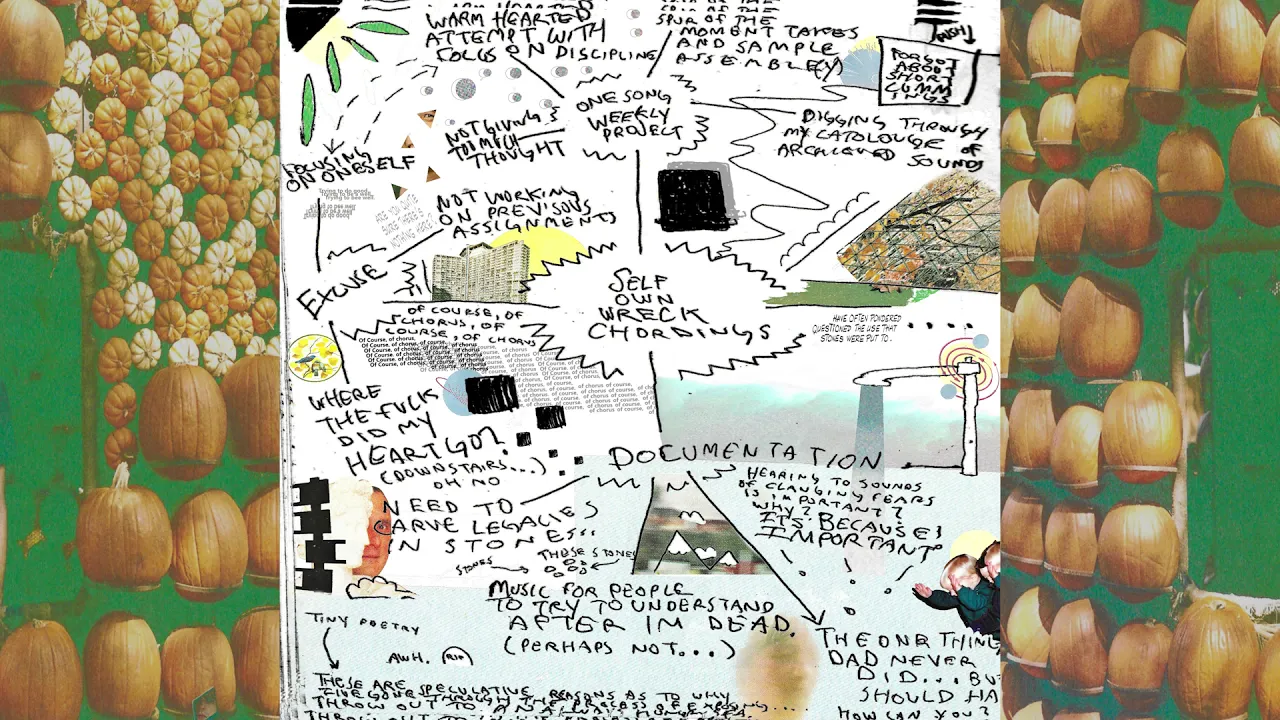 WARM HEARTED
ATTEMPT WITH
FOCUS ON DISCIPLINE
SPUR OF THE
MOMENT TAKES
AND SAMPLE
ASSEMBLE(Y)
PUSH
FORGOT
ABOUT
SHORT
CUMM
INGS
ONE SONG
WEEKLY
PROJECT
NOT GIVING IT
TOO MUCH
THOUGHT
DIGGING THROUGH
MY CATOLOUGE OF
ARCHIEVED SOUNDS
FOCUSING
ON ONESELF
Trying to do good.
Trying to be well.
Trying to bee well.
NOT WORKING
ON PREVISOUS
ASSIGNMENTS
NOTHING HERE?
EXCUSE
SELF
OWN
WRECK
CHORDINGS
OF COURSE, OF
CHORUS, OF
COURSE, OF CHORUS
Of Course, of chorus.
Of Course. of chorus. of course,
HAVE OFTEN PONDERED
QUESTIONED THE USE THAT
STONES WERE PUT TO.
WHERE
THE FUCK
DID MY
HEART GO?
(DOWNSTAIRS...)
OH NO
DOCUMENTATION
HEARING TO SOUNDS
OF CLANGING FEARS
IS IMPORTANT?
WHY?
ITS BECAUSE
IMPORTANT
NEED TO
CARVE LEGACIES
IN STONES...
STONES
THOSE STONES
MUSIC FOR PEOPLE
TO TRY TO UNDERSTAND
AFTER IM DEAD.
(PERHAPS NOT...)
TINY POETRY
AWH.
RIP
THE ONE THING
DAD NEVER
DID... BUT
SHOULD HA
HOW CAN YOU?
THESE ARE SPECULATIVE REASONS AS TO WHY